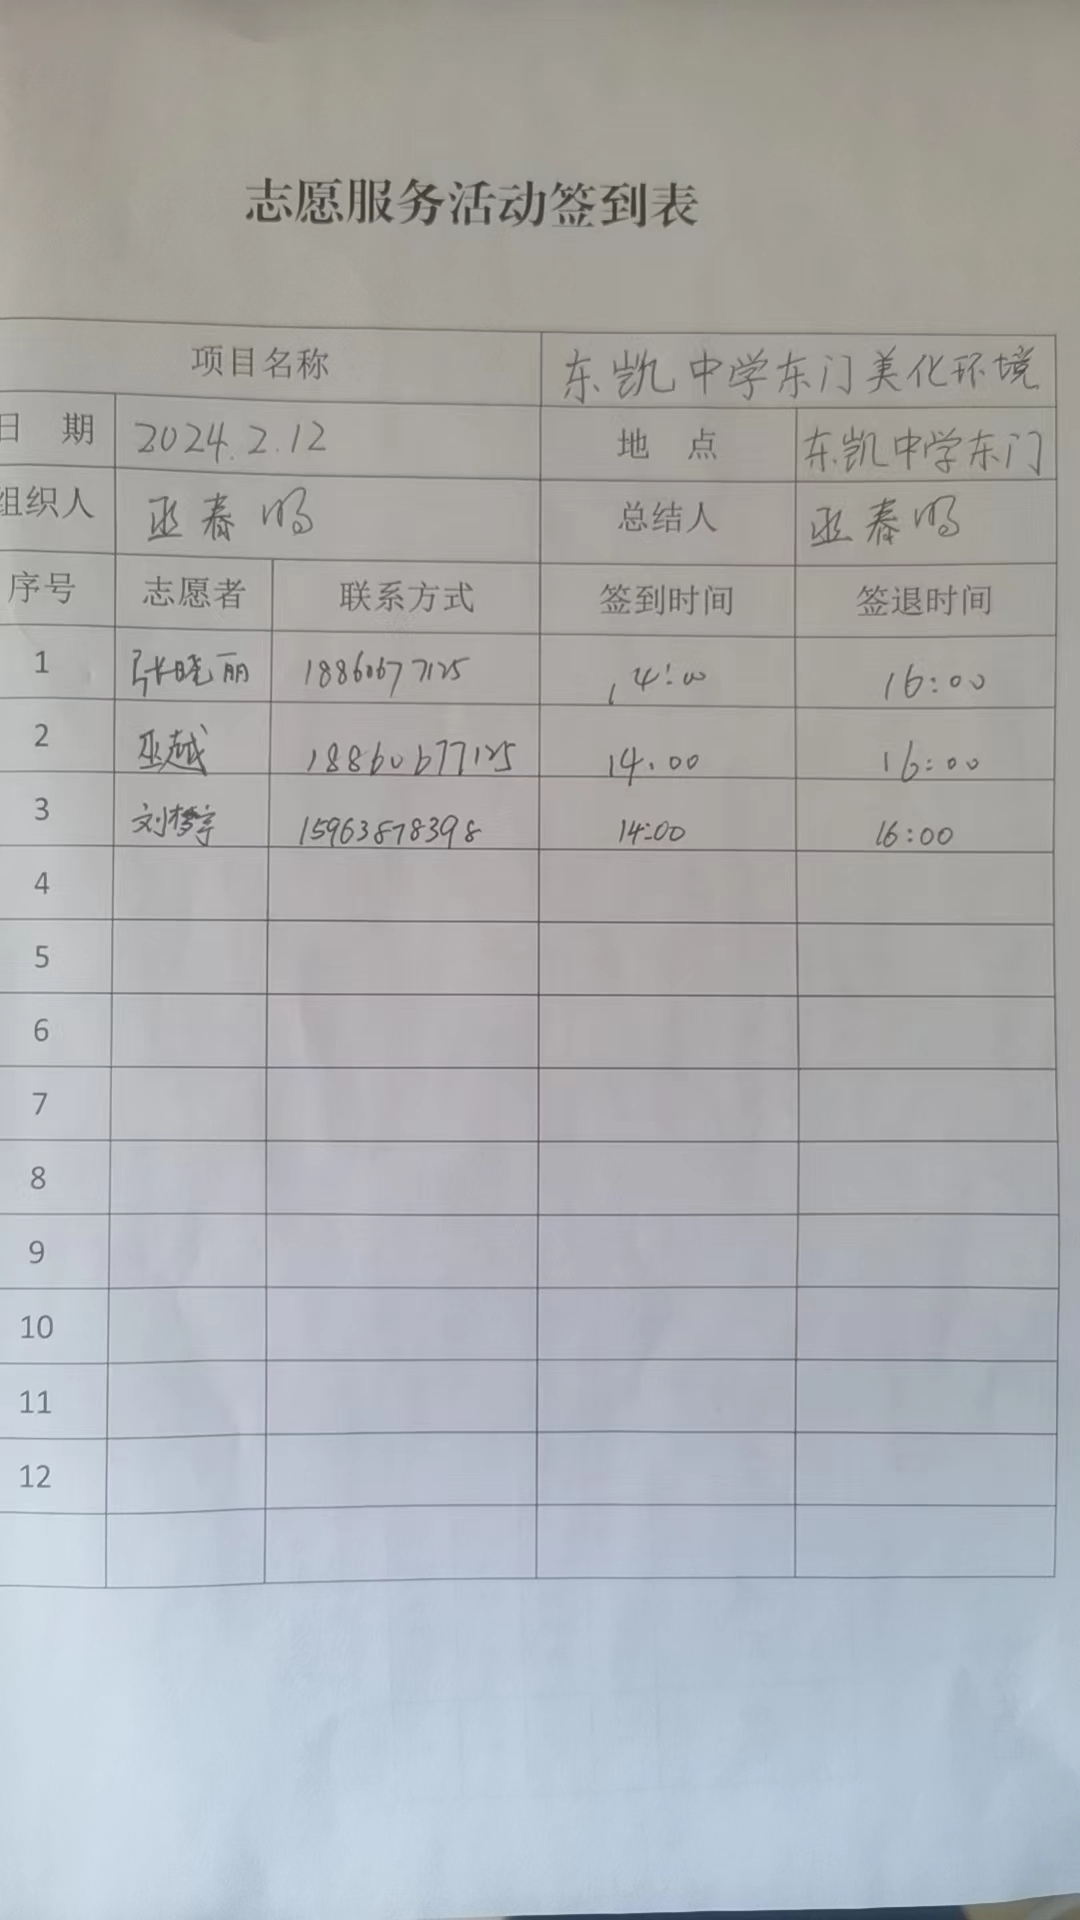 志愿服务活动签到表
项目名称 东凯中学东门美化环境
日 期 2024.2.12 地 点 东凯中学东门
组织人 巫春鸣 总结人 巫春鸣
序号 志愿者 联系方式 签到时间 签退时间
1 张晓丽 18860677125 14:00 16:00
2 巫越 18860677125 14.00 16:00
3 刘梦宇 15963878398 14:00 16:00
4
5
6
7
8
9
10
11
12